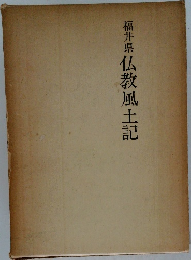 福井県仏教風土記